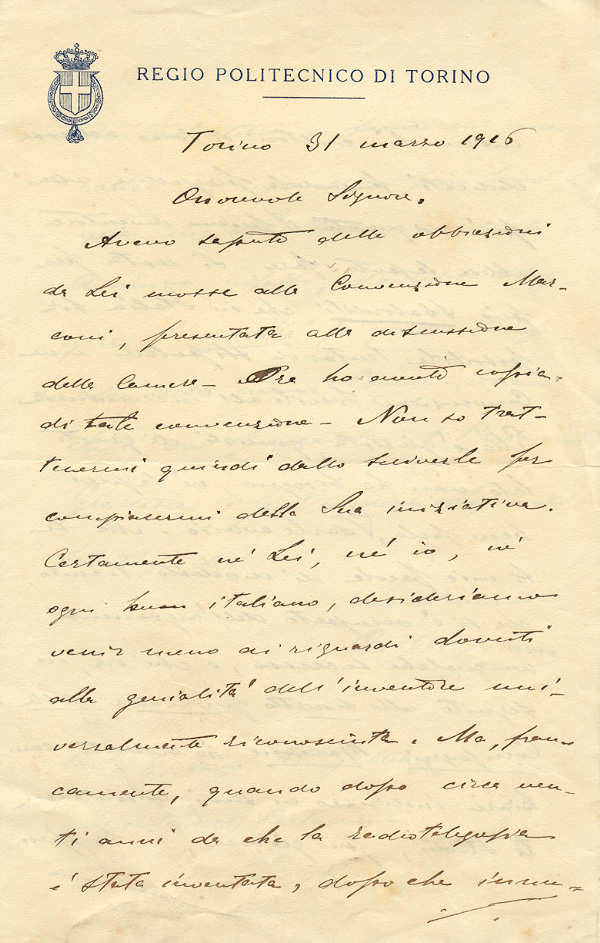 REGIO POLITECNICO DI TORINO
Torino 31 marzo 1916
Onorevole Signore,
Avevo saputo delle obbiezioni
da Lei mosse alla Convenzione Mar-
coni, presentata alla discussione
della Camera - Ora ho avuto copia
di tale convenzione - Non so trat-
tenermi quindi dallo scriverle per
compiacermi della Sua iniziativa.
Certamente nè Lei, nè io, nè
ogni buon italiano, desideriamo
venir meno ai riguardi dovuti
alla genialità dell'inventore uni-
versalmente riconosciuta. Ma, fran-
camente, quando dopo circa ven-
ti anni da che la radiotelegrafia
è stata inventata, dopo che innu-